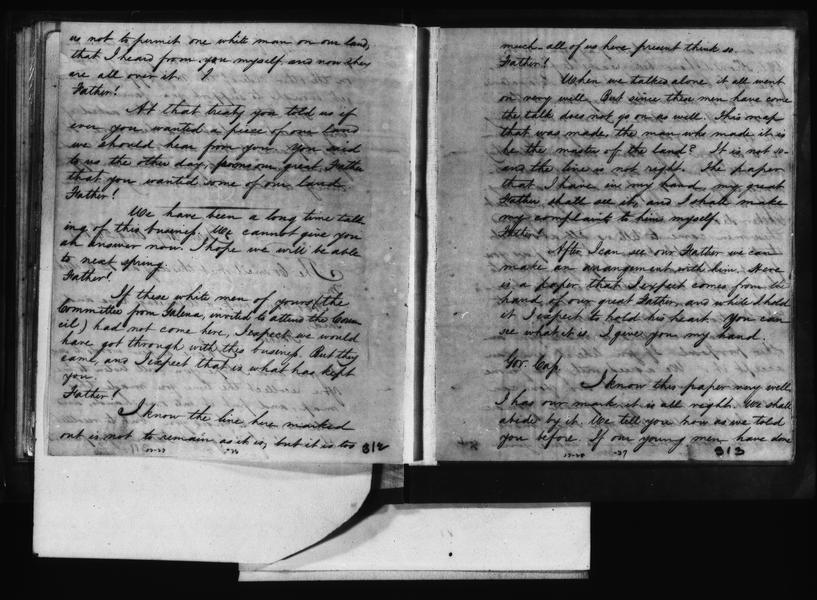 us not to permit one white man on our land,
that I heard from you myself and now they
are all over it.
Father!
At that treaty you told us if
ever you wanted a piece of our land
we should hear from you. You said
to us the other day, from our great Father
that you wanted some of our land.
Father!
We have been a long time talk
ing of this business. We cannot give you
an answer now. I hope we will be able
to next spring.
Father!
If these white men of yours (the
Committee from Galena, invited to attend the Coun
cil) had not come here, I expect we would
have got through with this business. But they
came, and I expect that is what has kept
you.
Father!
I know the line here marked
out is not to remain as it is, but it is too
312
much. all of us here present think so.
Father!
When we talked alone it all went
on very well. But since these men have come
the talk does not go on as well. This map
that was made, the man who made it is
he the master of the land? It is not so
and the line is not right. The paper
that I have in my hand, my great
Father shall see it, and I shall make
my complaint to him myself.
Father!
After I can see our Father we can
make an arrangement with him. Here
is a paper that I expect comes from the
hand of our great Father, and while I hold
it I expect to hold his heart. You can
see what it is. I give you my hand.
Gov. Cass
I know this paper very well
I has our mark it is all right. We shall
abide by it. We tell you now as we told
you before. If our young men have done
313